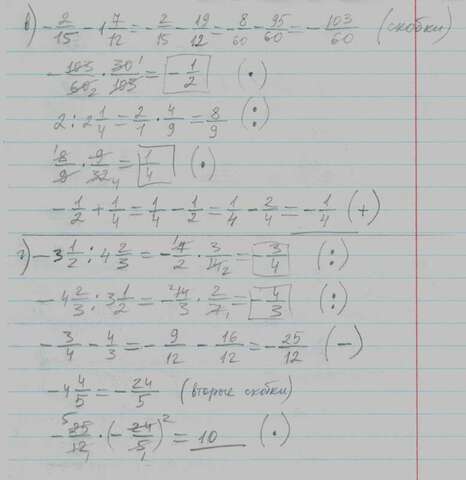 в) - 2/15 - 1 7/12 = - 2/15 - 19/12 = - 8/60 - 95/60 = - 103/60 (скобки)
- 103/60 2 · 30 1/103 = - 1/2 (·)
2 : 2 1/4 = 2/1 · 4/9 = 8/9 (:)
1 8/9 · 9/32 4 = 1/4 (·)
- 1/2 + 1/4 = 1/4 - 1/2 = 1/4 - 2/4 = - 1/4 (+)
г) - 3 1/2 : 4 2/3 = - 1 7/2 · 3/14 2 = - 3/4 (:)
- 4 2/3 : 3 1/2 = - 2 14/3 · 2/7 1 = - 4/3 (:)
- 3/4 - 4/3 = - 9/12 - 16/12 = - 25/12 (-)
- 4 4/5 = - 24/5 (вторые скобки)
- 5 25/12 1 · (- 24/5 1) 2 = 10 (·)